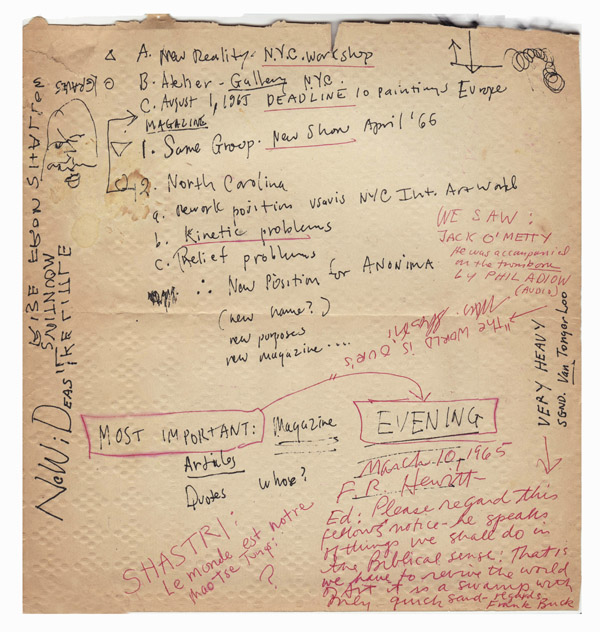 A. New Reality. N.Y.C. Workshop
B. Gallery NYC.
C. August 1, 1965 DEADLINE 10 paintings Europe
MAGAZINE
1. Same Group. New Show April '66
2. North Carolina
a. rework position visavis NYC Int. Art World
b. Kinetic problems
c. Relief problems
∴ New Position for ANONIMA
(new name?)
new purposes
new magazine....
WE SAW:
JACK O'METTY
He was accompanied
on the trombone
BY PHIL ADIOW
(AUDIO)
"THE WORLD IS OUR'S
VERY HEAVY
SGND. Van Tongor Loo
NOW: DEAS LIKE LITTLE
MOUNTINS
RISE
MOST IMPORTANT:
Magazine
EVENING
Articles
Quotes
whose?
March 10, 1965
F. R. Hewitt-
Ed: Please regard this
fellows' notice - he speaks
of things we shall do in
the Biblical sense: That is
we have to revive the world
of art it is a swamp with
only quick sand - regards
Frank Buck
SHASTRI:
Le monde est notre
mao Tse Tung:
?